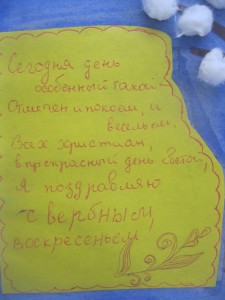 Сегодня день
особенный такой
Отмечен и покоем, и
весельем,
Вах христиан,
в прекрасный день святой,
Я поздравляю
с вербным,
воскресеньем